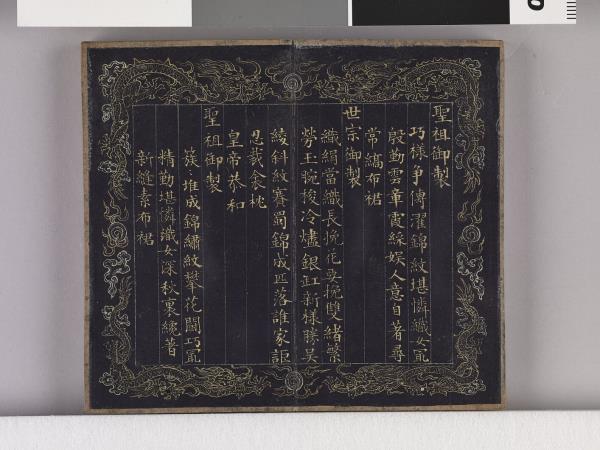 聖祖御製
巧樣爭傳濯錦紋堪憐織女寘
殷勤雲章霞綵娛人意自著尋
常縞布裙
世宗御製
織絹當織長挽花要挽雙緒縈
勞玉腕梭冷爐銀缸新樣勝吳
綾斜紋賽蜀錦成匹落誰家詎
忍裁衾枕
皇帝恭和
聖祖御製
簇〻堆成錦繡紋攀花鬭巧寘
精勤堪憐織女深秋裏纔著
新縫素布裙